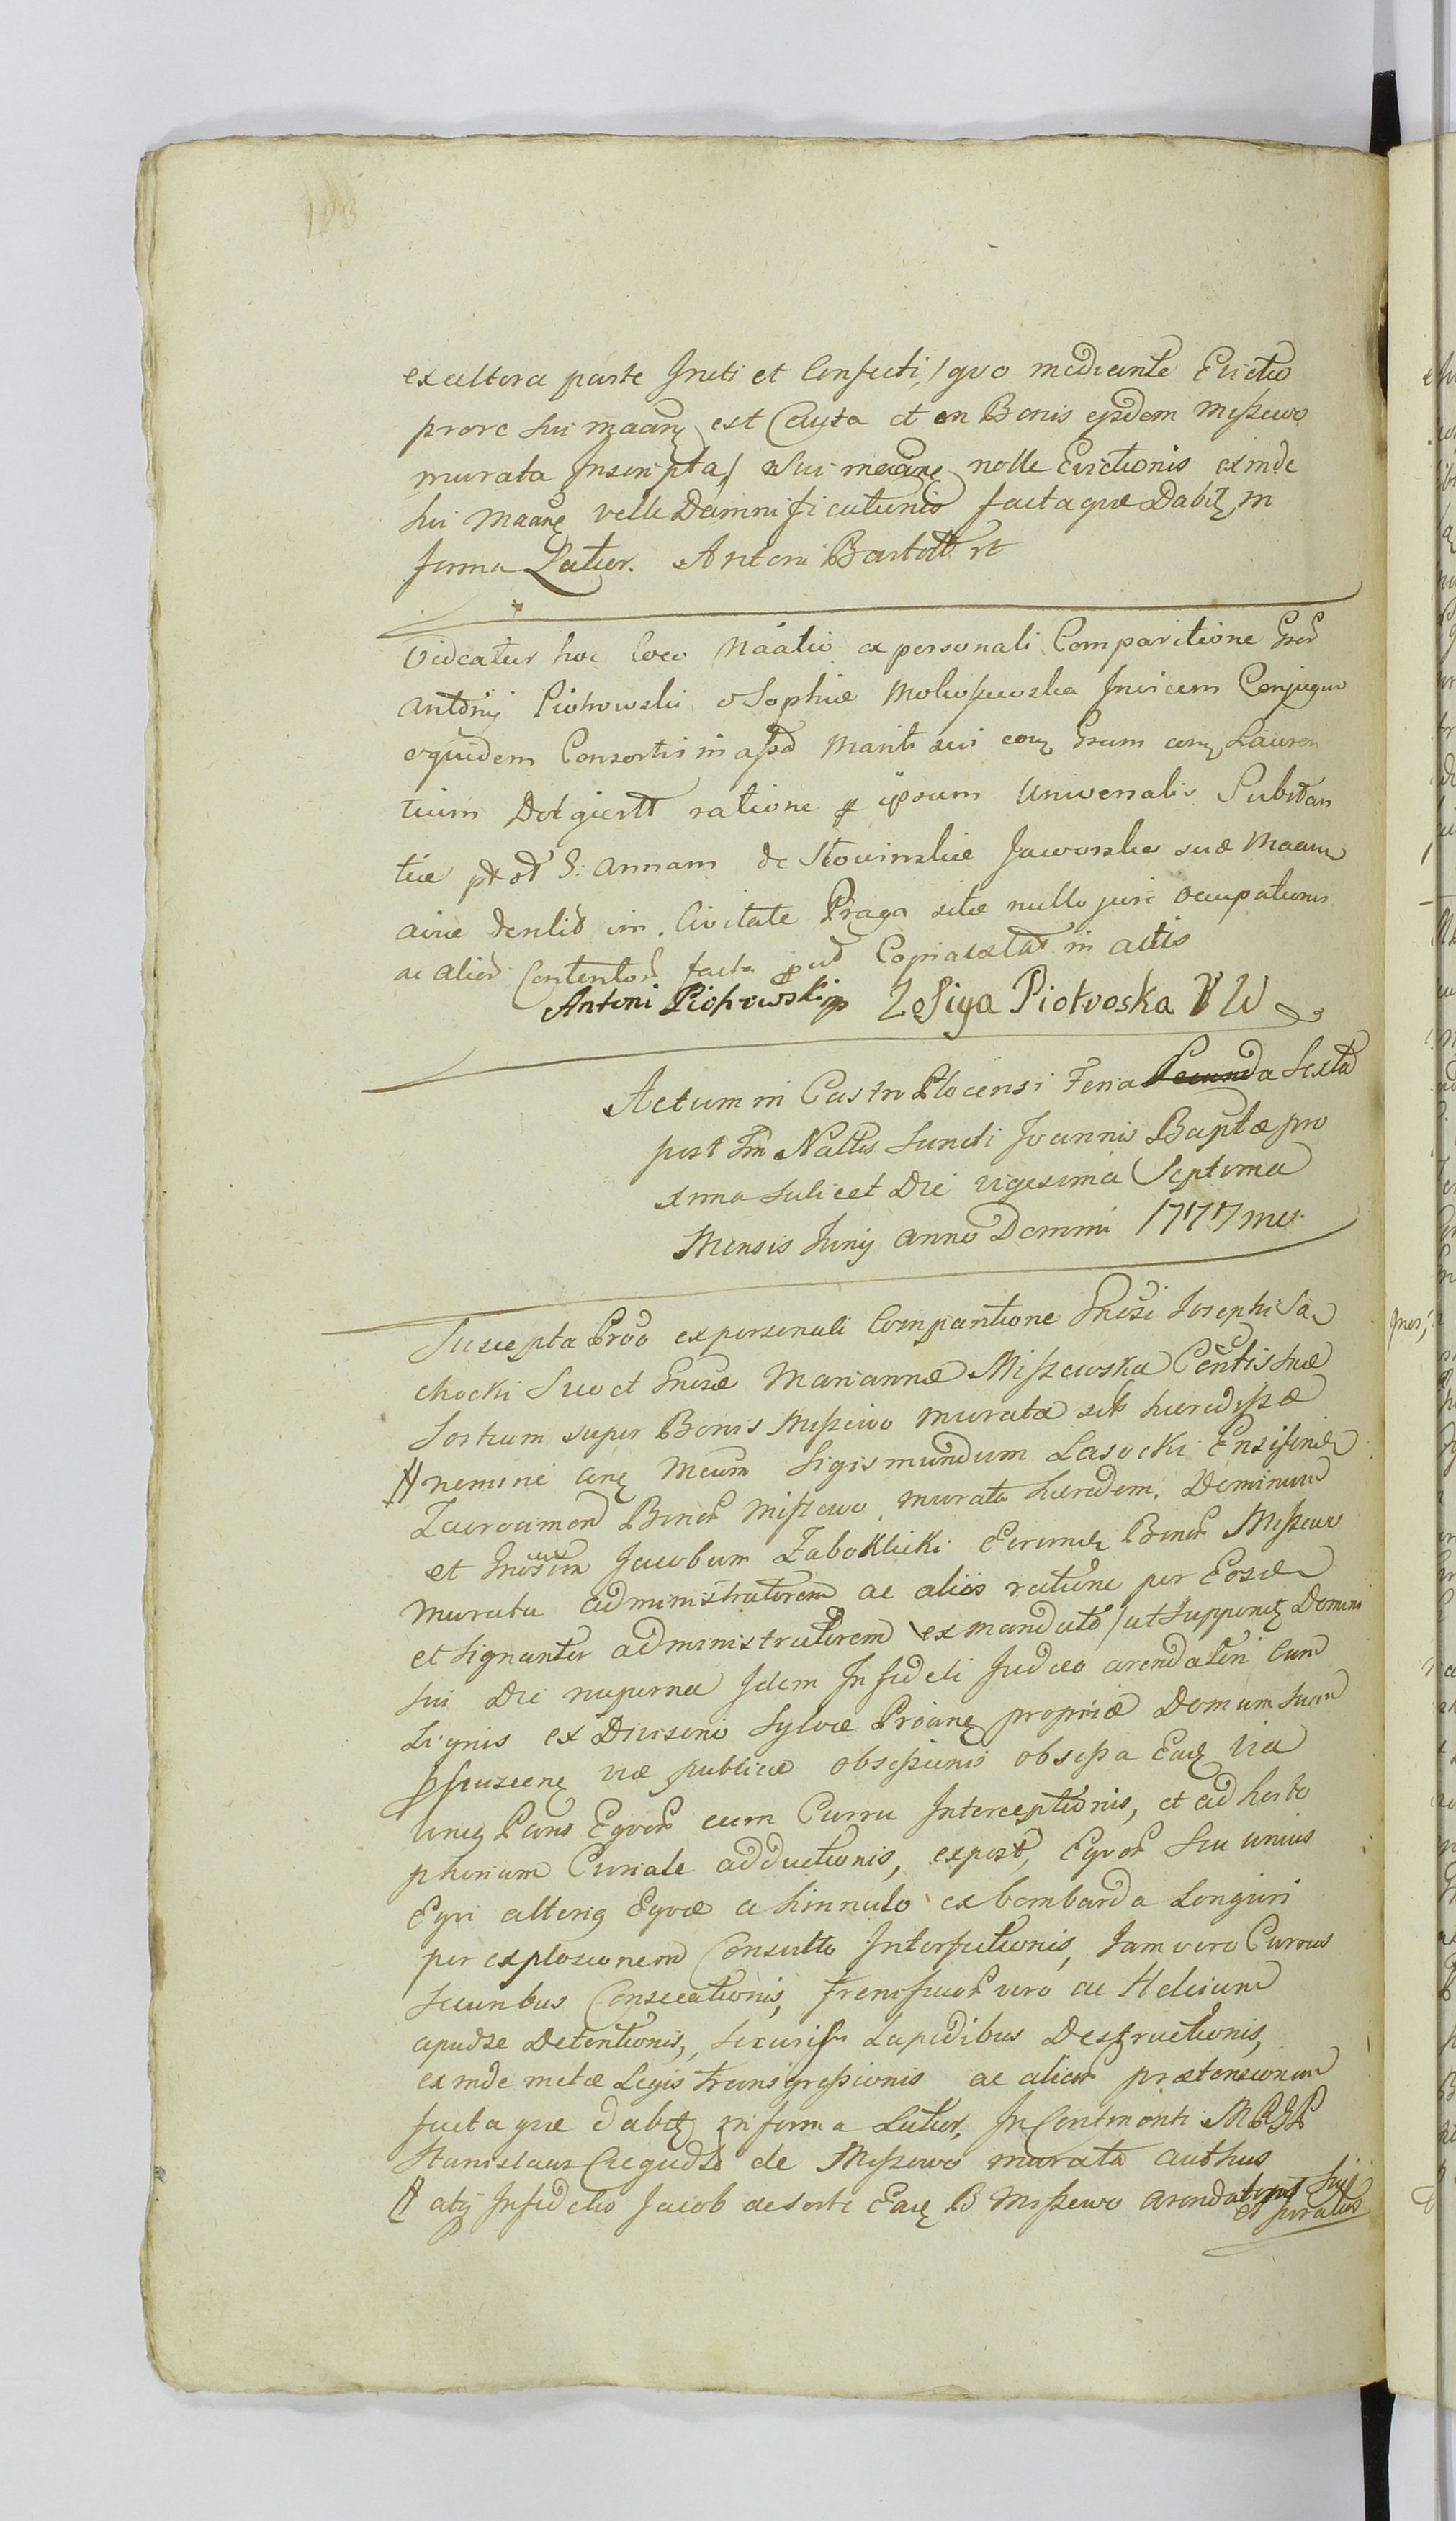 188
ex altera parte Jniti et Confecti, / quo mediante Evictio
prore sui maanę est Cauta et in Bonis ejsdem Miszewo
murata Jnscripta / Sui maanę nolle Evictionis exinde
sui Maanę velle Damnificationis factaque Dabit, in
forma Latior. Antoni Bartold
Videatur hoc loco Náatio ex personali Comparitione Gnor
Antonij Piotrowski & Sophiæ Mokoszewska Jnvicem Conjugum
& quidem Consortis in assa Mariti sui coram Gnum Lauren
tium Dotgiertt ratione p ipsum Universalis Substan
tiæ Annam de Slowinskie Jaworska suæ Maanæ
in Civitate Praga sitæ nullo jure occupationis
ac alior Contentor facta Copia extat in actis
Antoni Piotrowski Zofiya Piotroska
Actum in Castro Plocensi Feria Secunda Sexta
post Fm Nattis Sancti Joannis Baptæ pro
xima scilicet Die vigesima Septima
Mensis Junij anno Domini 1777mo
Suscepta Proō ex personali Comparitione Gnosi Josephi La
chocki Suo et Gnosæ Mariannæ Miszewska Contis suæ
Sortium super Bonis Miszewo murata hæredissæ
# nomine Sigismundum Lasocki Ensiferum
Zacrocimen Bonor Miszewo murata hæredem, Dominum
et Gnosum Jacobum Zaboklicki Eorundem Bonor Miszewo
murata administratorem ac alios ratione per Eosdem
et signanter administratorem ex mandato / ut Supponit Domini
sui Die nuperna Jdem Jnfideli Judæo arendatori cum
Lignis ex Divisoni Sylvæ Proanę propriæ Domum suam
viæ publicæ obsessionis obsessa Eadę via
Uniq Paris Eqvor cum Curru Jnterceptionis, et ad horto
phorium Curiale adductionis, expost, Eqvor seu unius
Eqvi alteriq Eqvæ a hinnulo ex bombarda Longiori
per explosionem Consulto Jnterfectionis, Jam vero Currus
Securibus Consecationis, frenisuor vero ac Helcium
apud se Detentionis, Lapidibus Destructionis,
exinde metæ Legis transgressionis ac alior prætensionum
factaque dabit in forma Latior, Jn Continonti
Stanislaus de Miszewo murata authus
# atq Jnfidelis Jacob de sorte Earę B Miszewo Arendatoris sui
et juratus